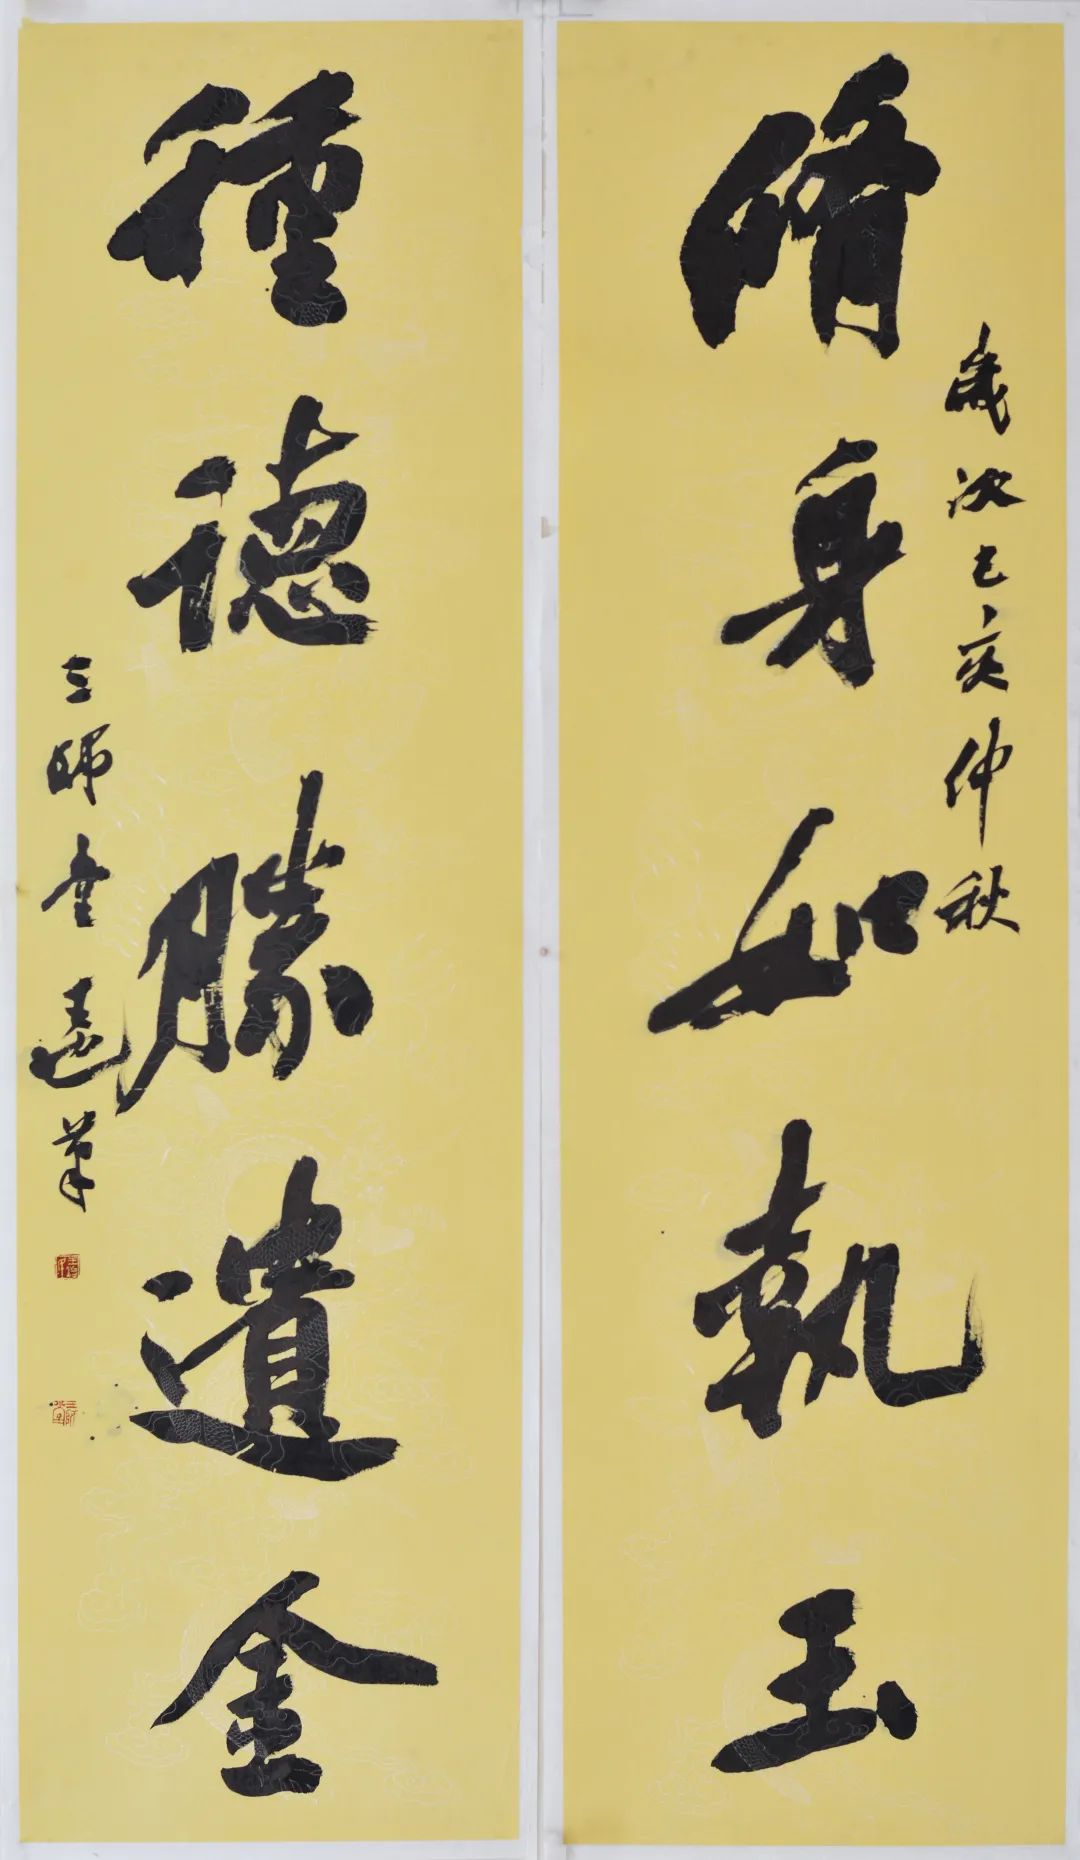 歲次己亥仲秋
脩身如執玉
種德勝遺金
三師堂